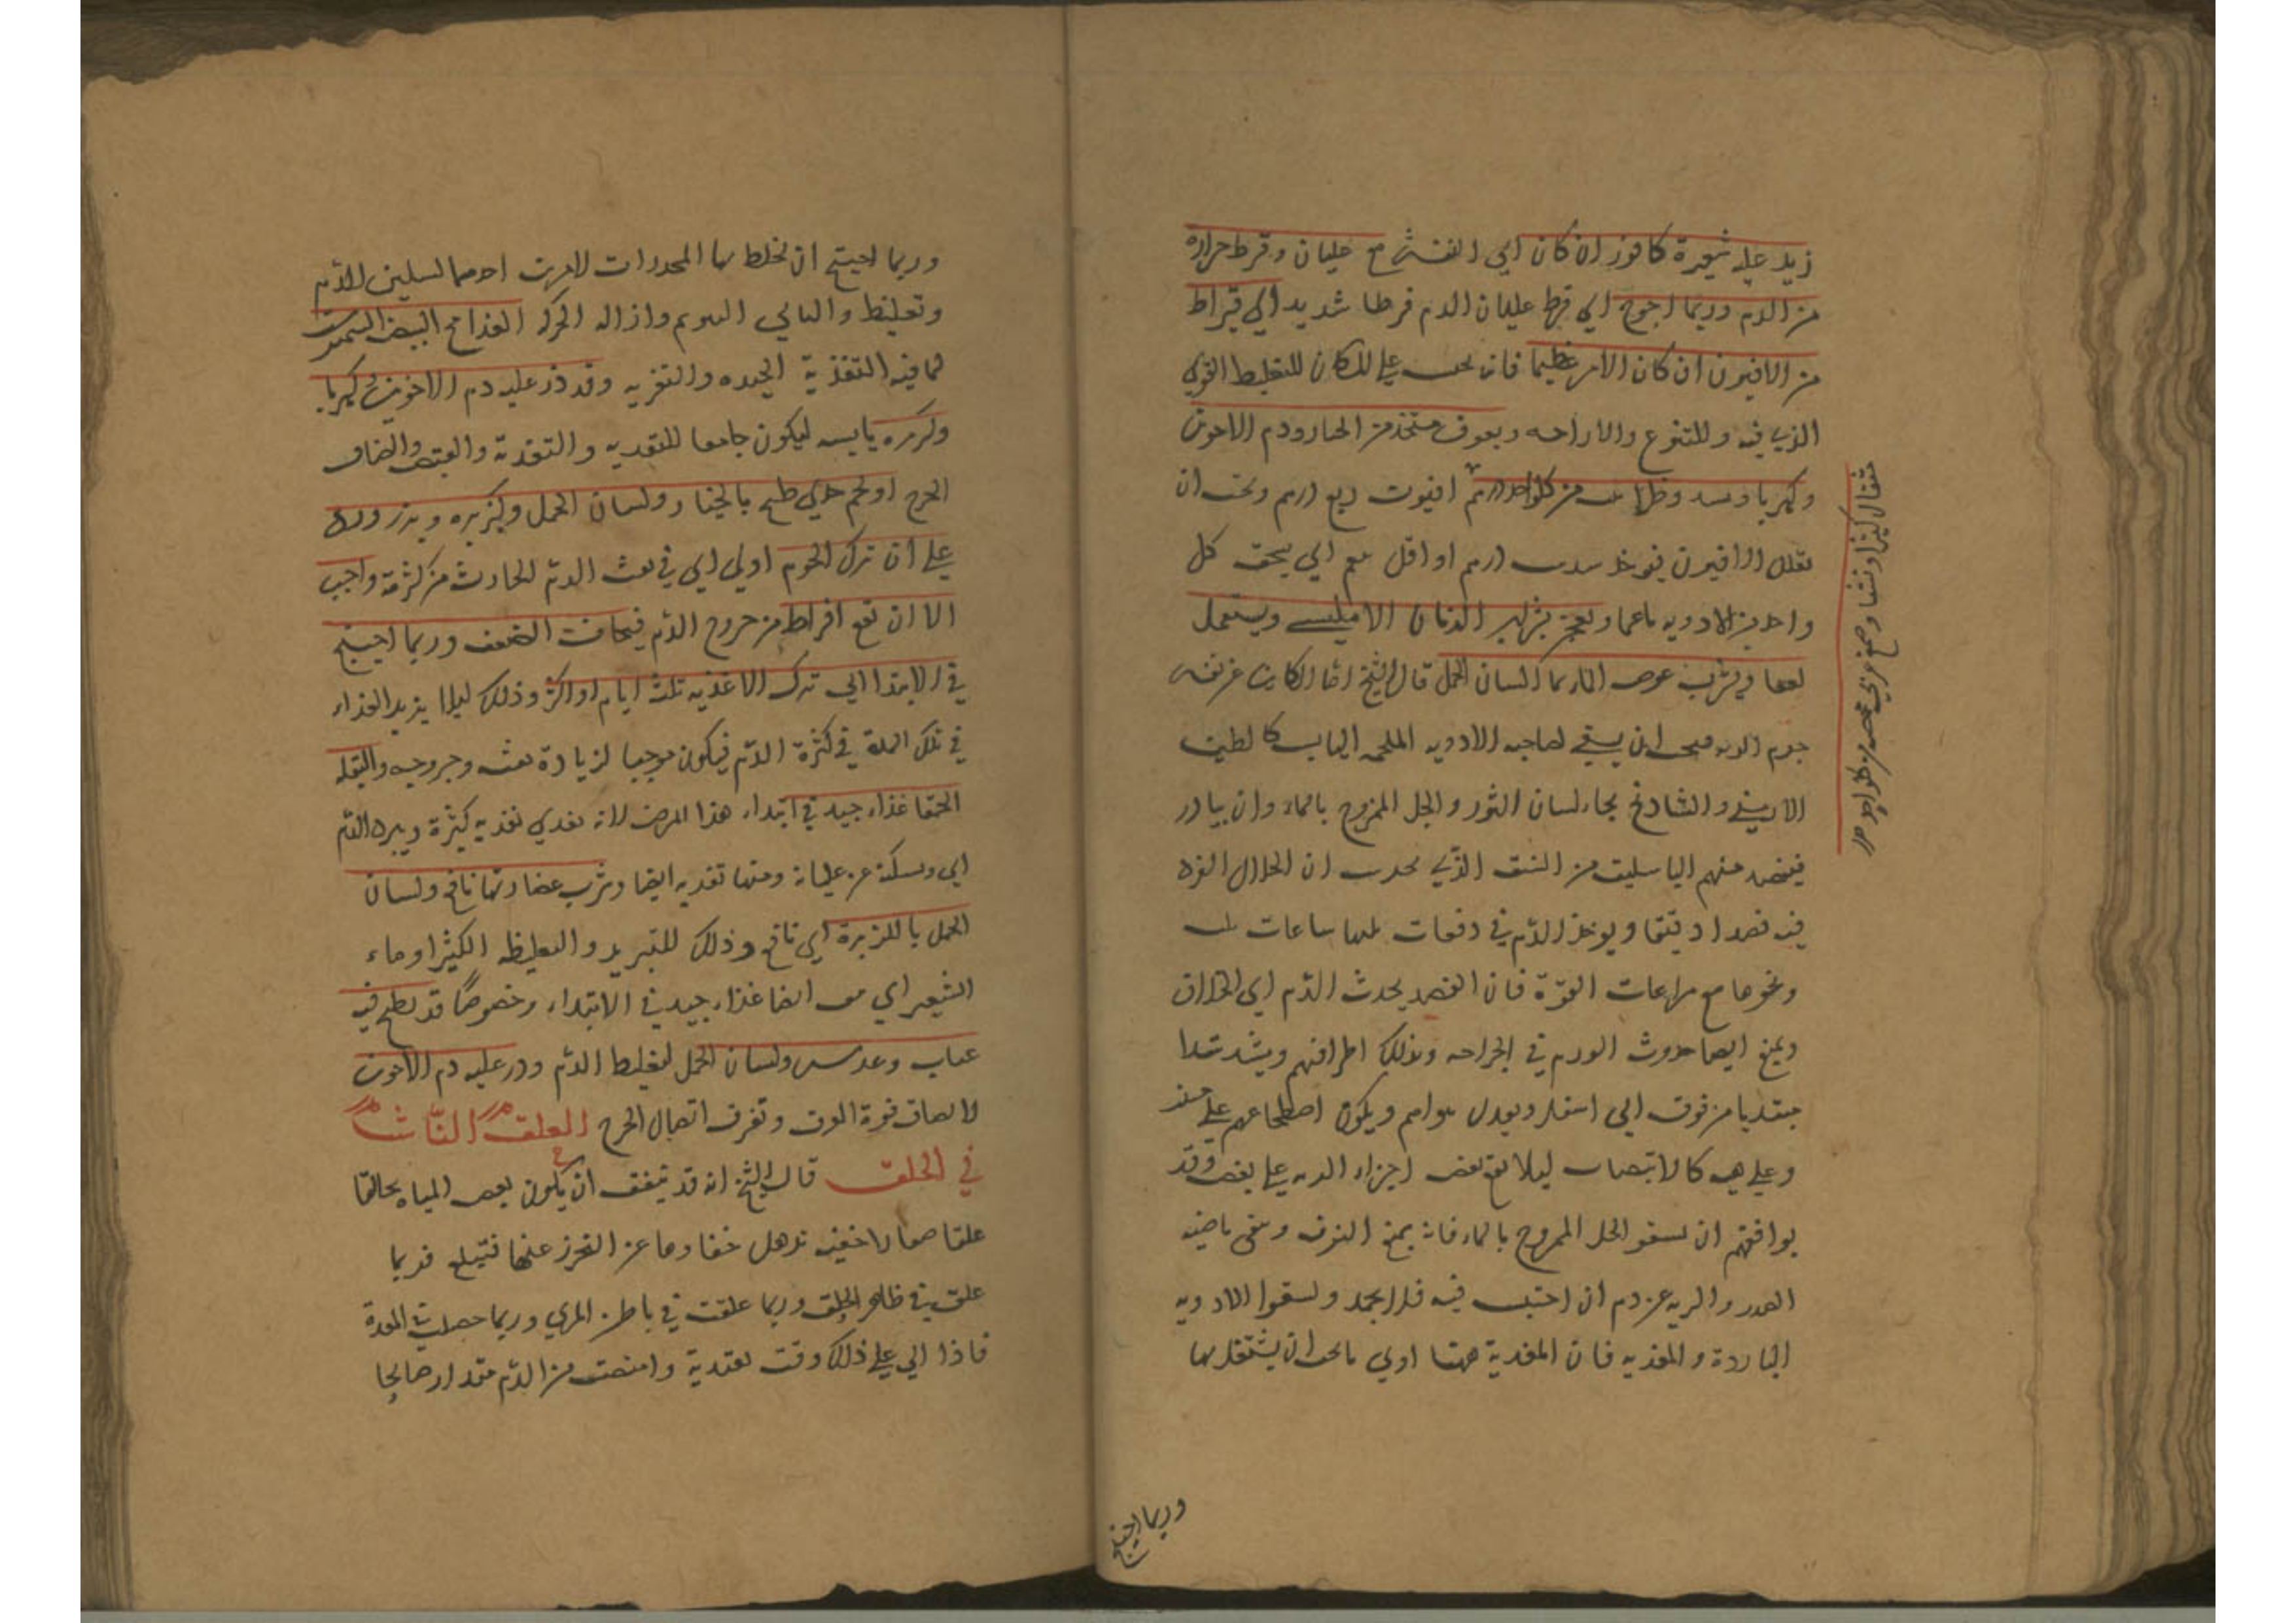 زيد عليه شعيرة كافور ان كان اي النفث مع غليان وفرط حرارة
من الدم وربما احوج اي فرط غليان الدم فرطا شديدا الي قيراط
من الافيون ان كان الامر عظيما فانه للتغليظ القوي
الذي فيه وللتنوم والاراحه وسفوف متخذ من ودم الاخوين
وكهربا من كلواحد درهم افيون ربع درهم ويجب ان
يقلل الافيون فيوخذ سدس درهم او اقل ثم اي يسحق كل
واحد من الادويه ويعجن ويستعمل
لعقا ويشرب عوض الماء ماء لسان الحمل قال الشيخ اما الكاين عن نفس
جرم الريه فيجب ان يسقي صاحبه الادويه الملحمه اليابسه كالطين
الارمني والشادنج بماء لسان الثور والخل الممزوج بالماء وان يبادر
فيفصد منهم الباسليق من الشق الذي يحدس ان انحلال الفرد
فيه فصدا دقيقا ويوخذ الدم في دفعات بينها ساعات ثلث
ونحوها مع مراعات القوة فان الفصد يحدث الدم اي الخلاف
ويمنع ايضا حدوث الورم في الجراحه وتدلك اطرافهم ويشد شدا
مبتديا من فوق الي اسفل ويعدل هواهم ويكون اضطجاعهم علي جنب
وعلي هيه كالانتصاب ليلا يقع بعض اجزاء الريه علي بعض وقد
يوافقهم ان يسقو الخل الممزوج بالماء فانه يمنع النزف وينقي ناحيه
الصدر والريه عن دم ان احتبس فيه فلا يجمد ويسقوا الادويه
الباردة والمغريه فان المغرية ههنا اولي ما يجب ان يشتغل بها
مثقال كثيرا ونشا وصمغ عربي من كلواحد
وربما احتيج
وربما احتيج ان نخلط بها المخدرات لامرين احدهما لتسكين الدم
وتغليظ والثاني التنويم وازالة الحركه الغذا مخ البيض النيمرشت
لما فيه التغذية الجيده والتغريه وقد ذر عليه دم الاخوين وكهربا
وكزبره يابسه ليكون جامعا للتغريه والتغذية والقبض والصاق
الجرح او لحم طبخ بالخيار ولسان الحمل وكزبره وبزر ورد
علي ان ترك اللحوم اولي اي في نفث الدم الحادث من كثرته واجب
الا ان تقع افراط من خروج الدم فيخاف الضعف وربما احتيج
في الابتدا الي ترك الاغذيه ثلث ايام او اكثر وذلك ليلا يزيد الغذاء
في تلك المدة في كثرة الدم فيكون موجبا لزيادة نفثه وخروجه والبقله
الحمقا غذاء جيد في ابتداء هذا المرض لانه يغذي تغذيه كثيرة ويبرد الدم
اي ويسكنه عن غليانه ومنها تغريه ايضا وشرب عصارتها نافع ولسان
الحمل بالكزبرة اي نافع وذلك للتبريد والتغليظ الكثير او ماء
الشعير اي هو ايضا غذاء جيد في الابتداء وخصوصا قد يطبخ فيه
عناب وعدس ولسان الحمل لتغليظ الدم وذر عليه دم الاخوين
لالصاق فوهة العرق وتفرق اتصال الجرح العلق الناشب
في الحلق قال الشيخ انه قد يتفق ان يكون بعض المياه عالقا
علقا صغارا خفيه تذهل خفاوها عن التحرز عنها فتبتلع فربما
علق في ظاهر الحلق وربما علقت في باطن المري وربما حصلت في المعدة
فاذا اتي علي ذلك وقت تعتد به وامتصت من الدم مقدارا صالحا